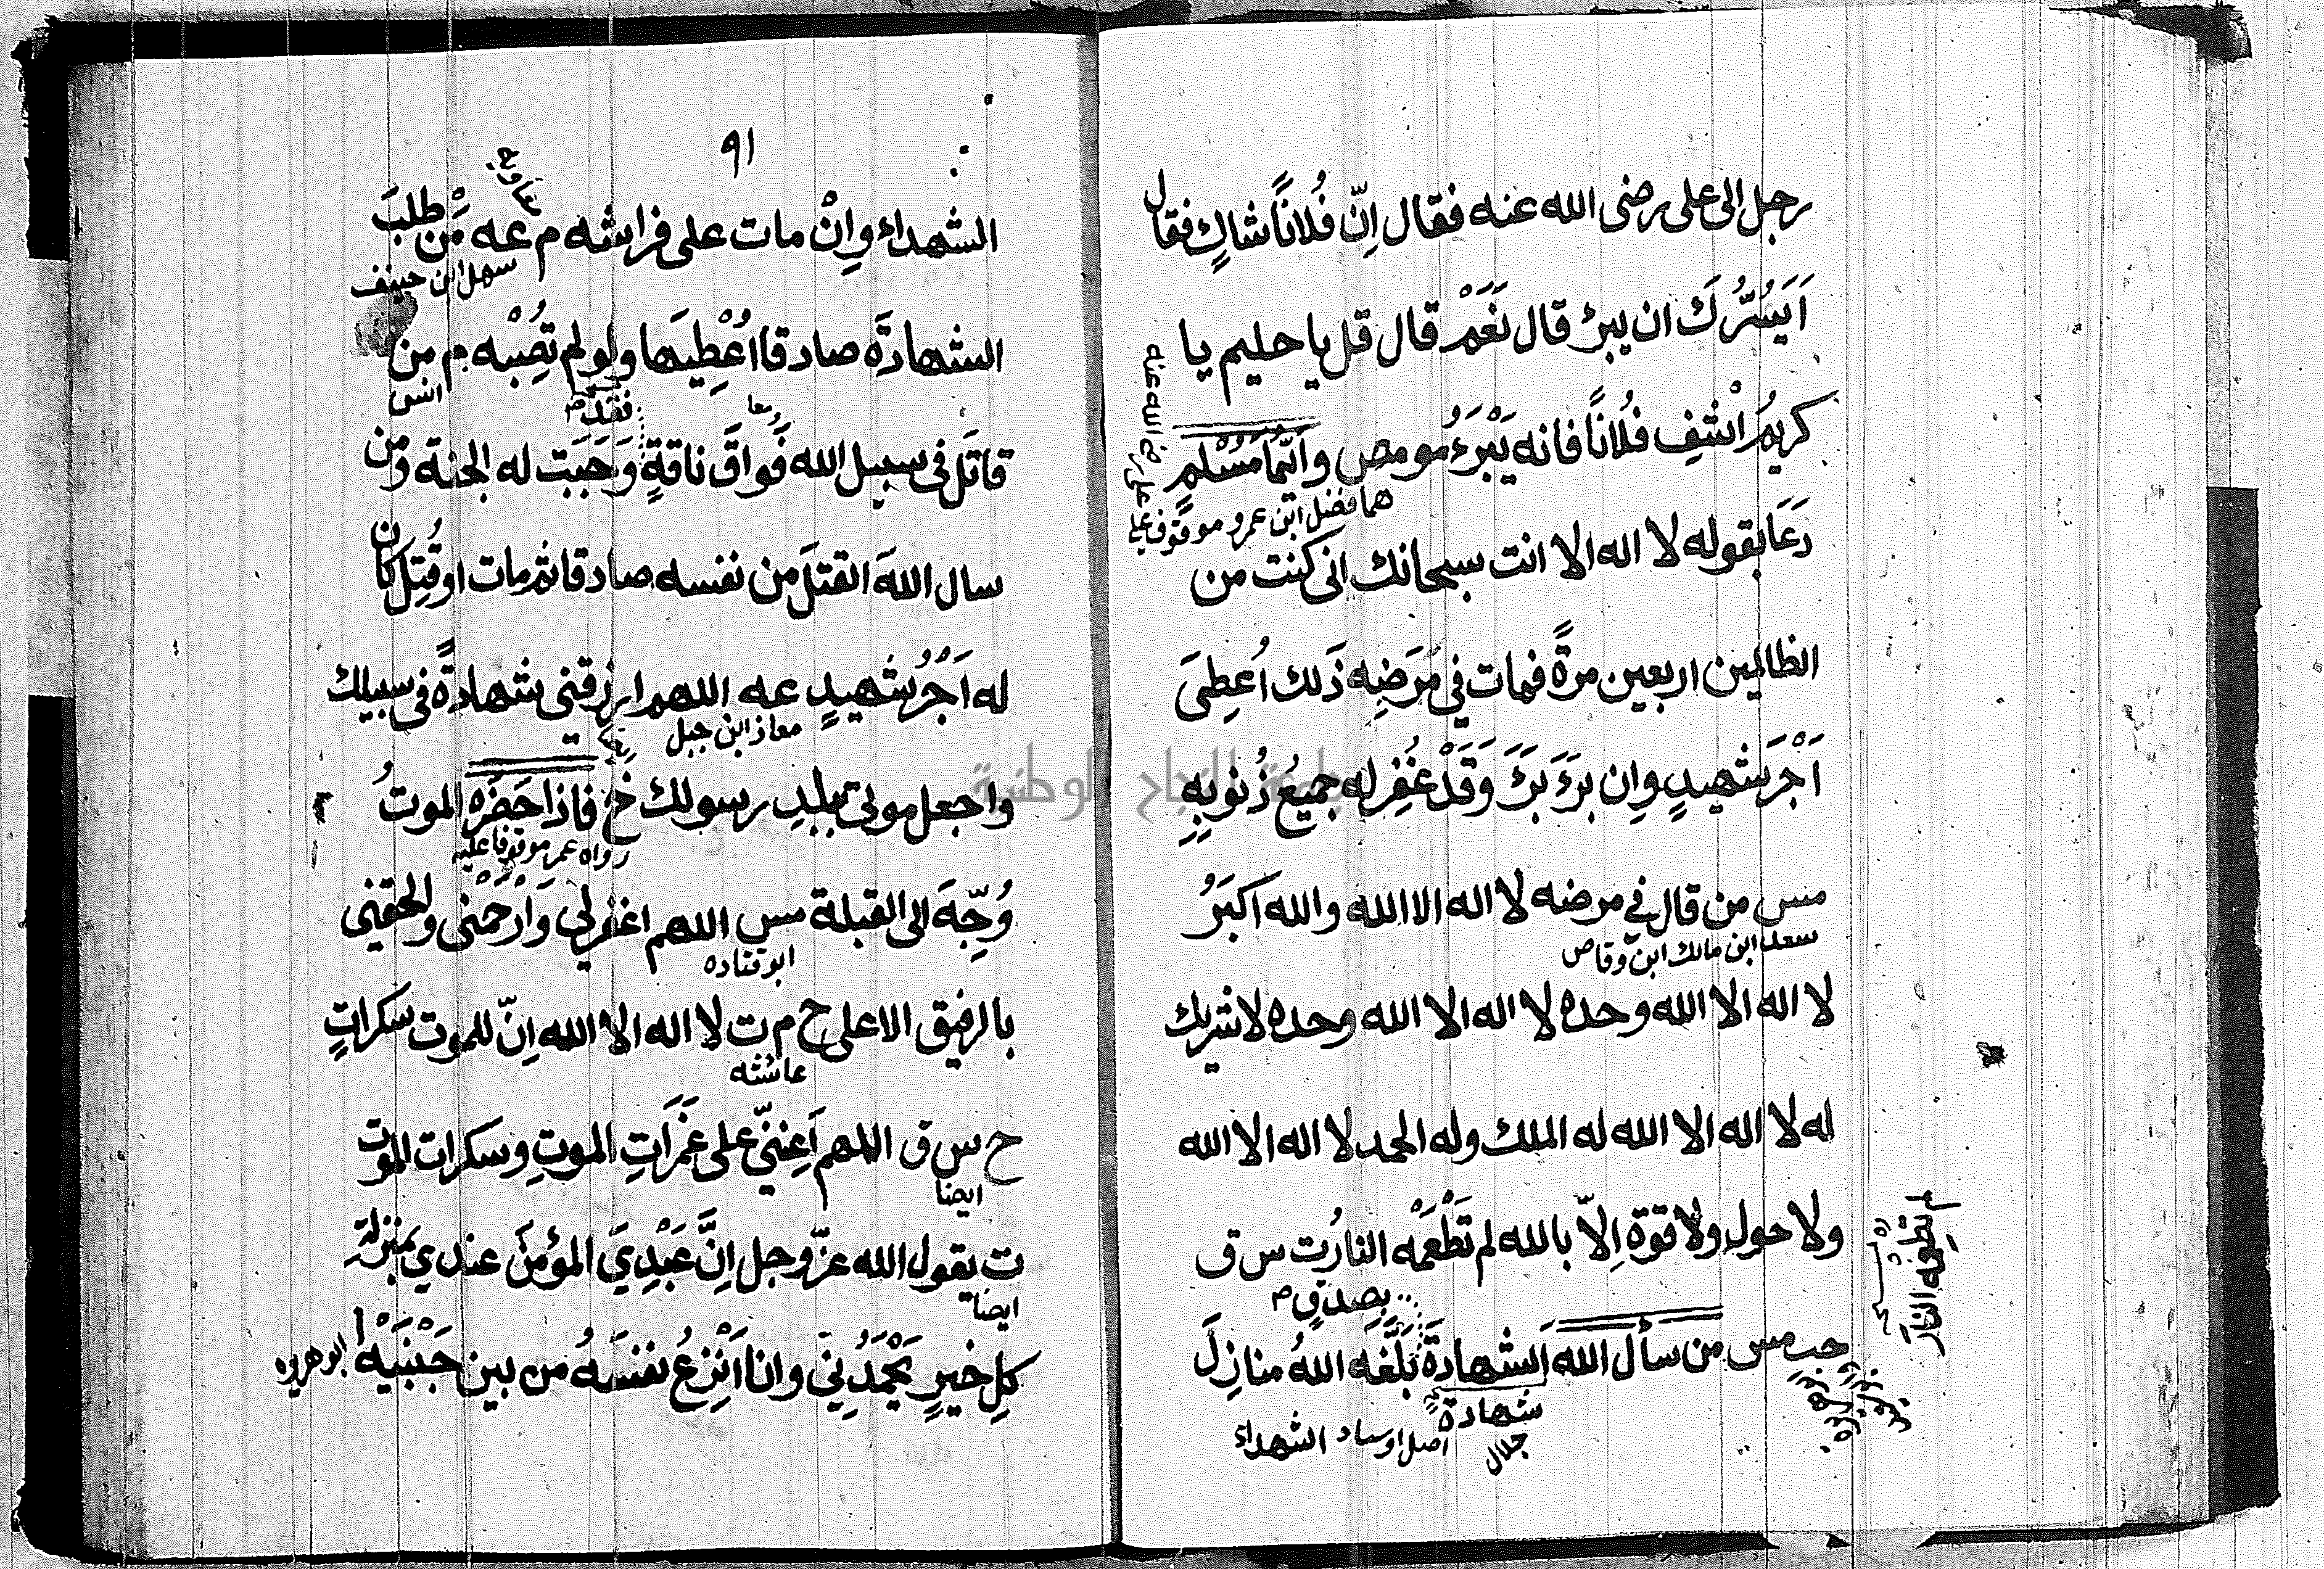 رجل الى على رضى الله عنه فقال اِنّ فُلاناً شاكٍ فقال
اَيَسُرُّكَ ان يبرئ قال نَعَمْ قال قل يا حليم يا
كريمُ اْشفِ فُلاناً فانه يَبْرَءُ مومص واَيّمَا مُسْلمٍ
هما فضل ابن عمرو موقوفا على على رضى الله عنه
دَعَا بقوله لا اله الا انت سبحانك انى كنت من
الظالمين اربعين مرةً فمات في مَرَضِه ذَلك اُعطِىَ
اَجْرَ شهيدٍ واِن بَرَئَ بَرَئَ وَقَدْ غُفِر له جميعُ ذُنوبِهِ
مس من قال في مرضه لا اله الا الله والله اكبَرُ
سعد ابن مالك ابن وقاص
لا اله الا الله وحده لا اله الا الله وحده لا شريك
له لا اله الا الله له الملك وله الحمد لا اله الا الله
ولا حول ولا قوة اِلّا بالله لم تَطْعَمْه النارُ ت س ق
لم تطعمه النار
بِصِدقٍ ص
حب مس من سأل الله الشهادةَ بَلَّغَه اللهُ منازِلَ
شهادة
جلال
اصل
الشهداء
٩١
الشهداء واِنْ مات على فراشه م عه مَنْ طلبَ
سهل ابن حنيف
الشهادَةَ صادقا اُعْطِيَها ولو لم تُصِبْه م من
انس
قاتَل فى سبيل الله فَُواقَ ناقةٍ وَجَبَت له الجنة ومن
معا
سال اللهَ القتلَ من نفسه صادقا ثم مات او قُتِل كان
له اَجْرُ شهيدٍ عه اللهم ارزقنى شهادةً فى سبيلك
معاذ ابن جبل
واجعل موتى ببلدِ رسولك خ فاذا حَضَرَه الموتُ
رواه عمر موقوفا عليه
وُجِّهَ الى القبلة مس اللهم اغفرلي وَارْحَمْنى والحقني
ابو قتاده
بالرفيق الاعلى خ م ت لا اله الا الله اِنّ للموت سكراتٍ
عائشه
خ س ق اللهم اَعِنّي على غَمَرَاتِ الموتِ وسكرات الموت
ايضا
ت يقول الله عزّ وجل اِنَّ عَبْدِيَ المؤمنَ عندي بمنزلةِ
ايضا
كلِ خيرٍ يَحْمَدُنِي وانا اَنْزِعُ نفسَهُ من بين جَنْبَيْه ا
ابو هريره